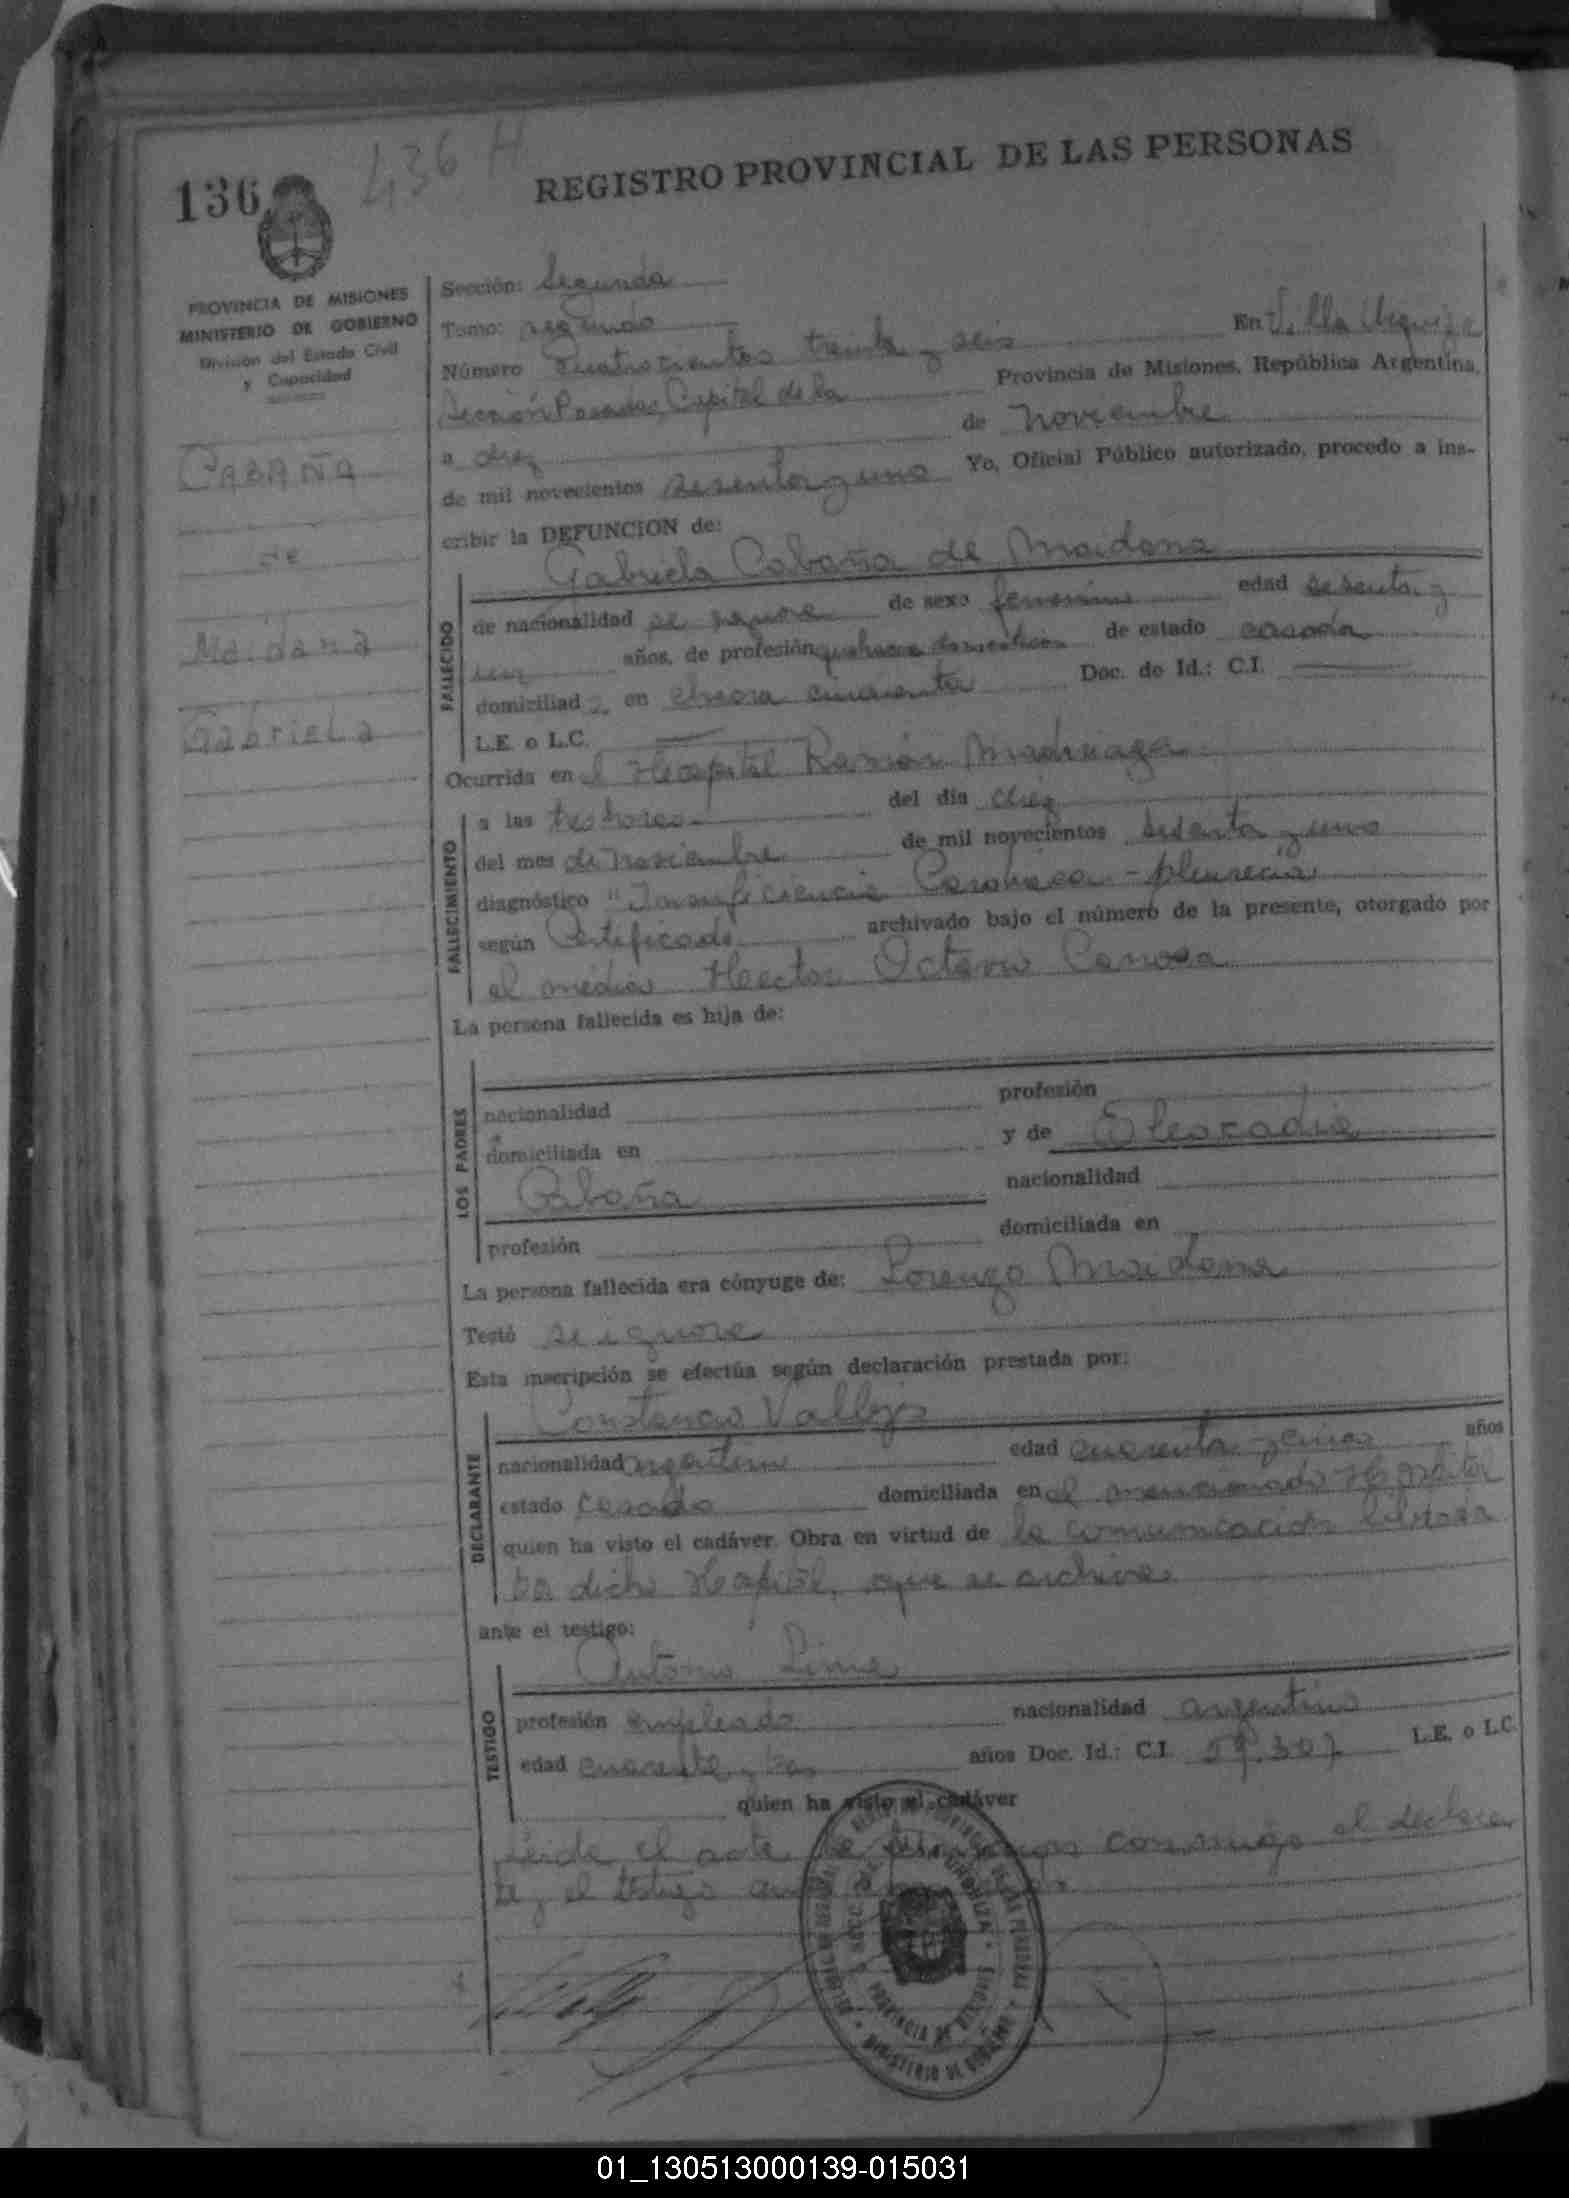 136
436 H
REGISTRO PROVINCIAL DE LAS PERSONAS
PROVINCIA DE MISIONES
MINISTERIO DE GOBIERNO
División del Estado Civil
y Capacidad
CABAÑA
de
Maidana
Gabriela
Sección: Segunda
Tomo: segundo
Número Cuatrocientos treinta y seis En Villa Urquiza
Sección Posadas, Capital de la Provincia de Misiones, República Argentina,
a diez de noviembre
de mil novecientos sesenta y uno Yo, Oficial Público autorizado, procedo a ins-
cribir la DEFUNCION de:
Gabriela Cabaña de Maidana
FALLECIDO
de nacionalidad se ignora de sexo femenino edad sesenta y
un años, de profesión quehaceres domésticos de estado casada
domiciliad a en chacra cincuenta Doc. de Id.: C.I.
L.E. o L.C.
Ocurrida en el Hospital Ramón Madriaga
FALLECIMIENTO
a las tres horas del día diez
del mes de noviembre de mil novecientos sesenta y uno
diagnóstico "Insuficiencia Cardíaca - pleuresía
según Certificado archivado bajo el número de la presente, otorgado por
el médico Hector Octavio Canosa
La persona fallecida es hija de:
LOS PADRES
nacionalidad profesión
domiciliada en y de Eleocadia
Cabaña nacionalidad
profesión domiciliada en
La persona fallecida era cónyuge de: Lorenzo Maidana
Testó se ignora
Esta inscripción se efectúa según declaración prestada por:
Constancio Vallejos
DECLARANTE
nacionalidad argentino edad cuarenta y cinco años
estado casado domiciliada en el mencionado Hospital
quien ha visto el cadáver. Obra en virtud de la comunicación
dicho Hospital, que se archiva
ante el testigo:
Antonio Lima
TESTIGO
profesión empleado nacionalidad argentino
edad cuarenta y tres años Doc. Id.: C.I. 59.307 L.E. o L.C.
quien ha visto el cadáver
Leída el acta la conmigo el declaran
te y el testigo
PROVINCIA DE MISIONES
MINISTERIO DE GOBIERNO
01_130513000139-015031